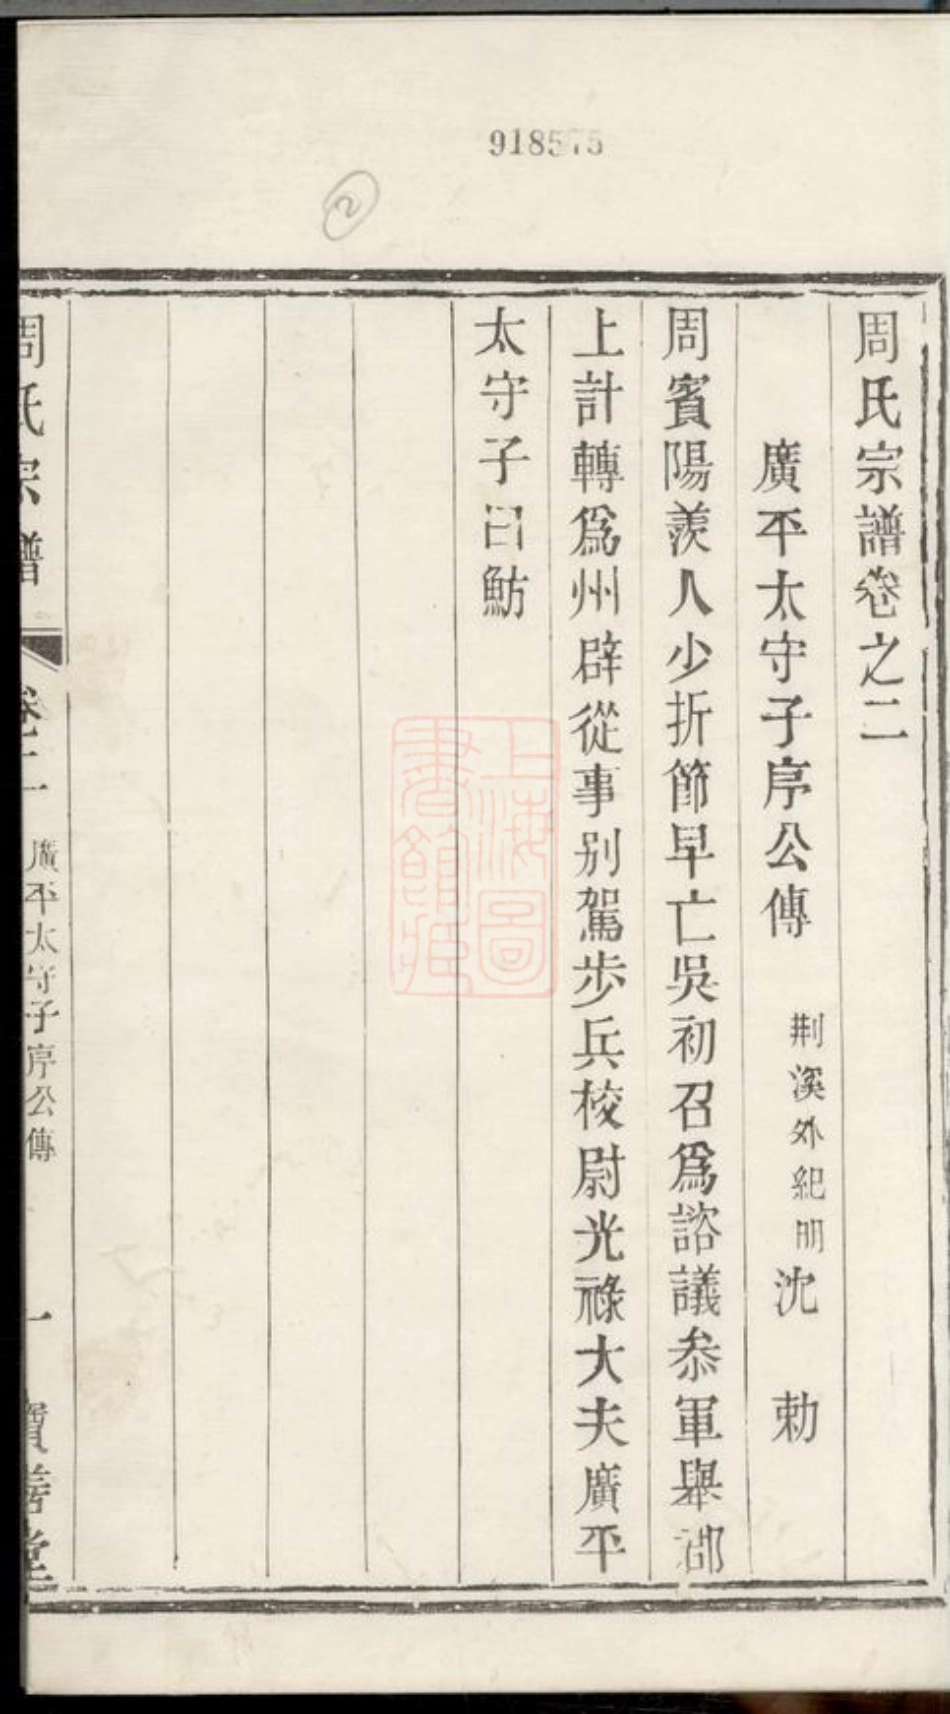 918575
2
周氏宗譜卷之二
廣平太守子序公傳 荆溪外紀明沈 勅
周賓陽羨人少折節早亡吳初召爲諮議叅軍舉郡
上計轉爲州辟從事别駕步兵校尉光祿大夫廣平
太守子曰魴
周氏宗譜 卷二 廣平太守子序公傳 一 寶善堂
上海圖書館藏